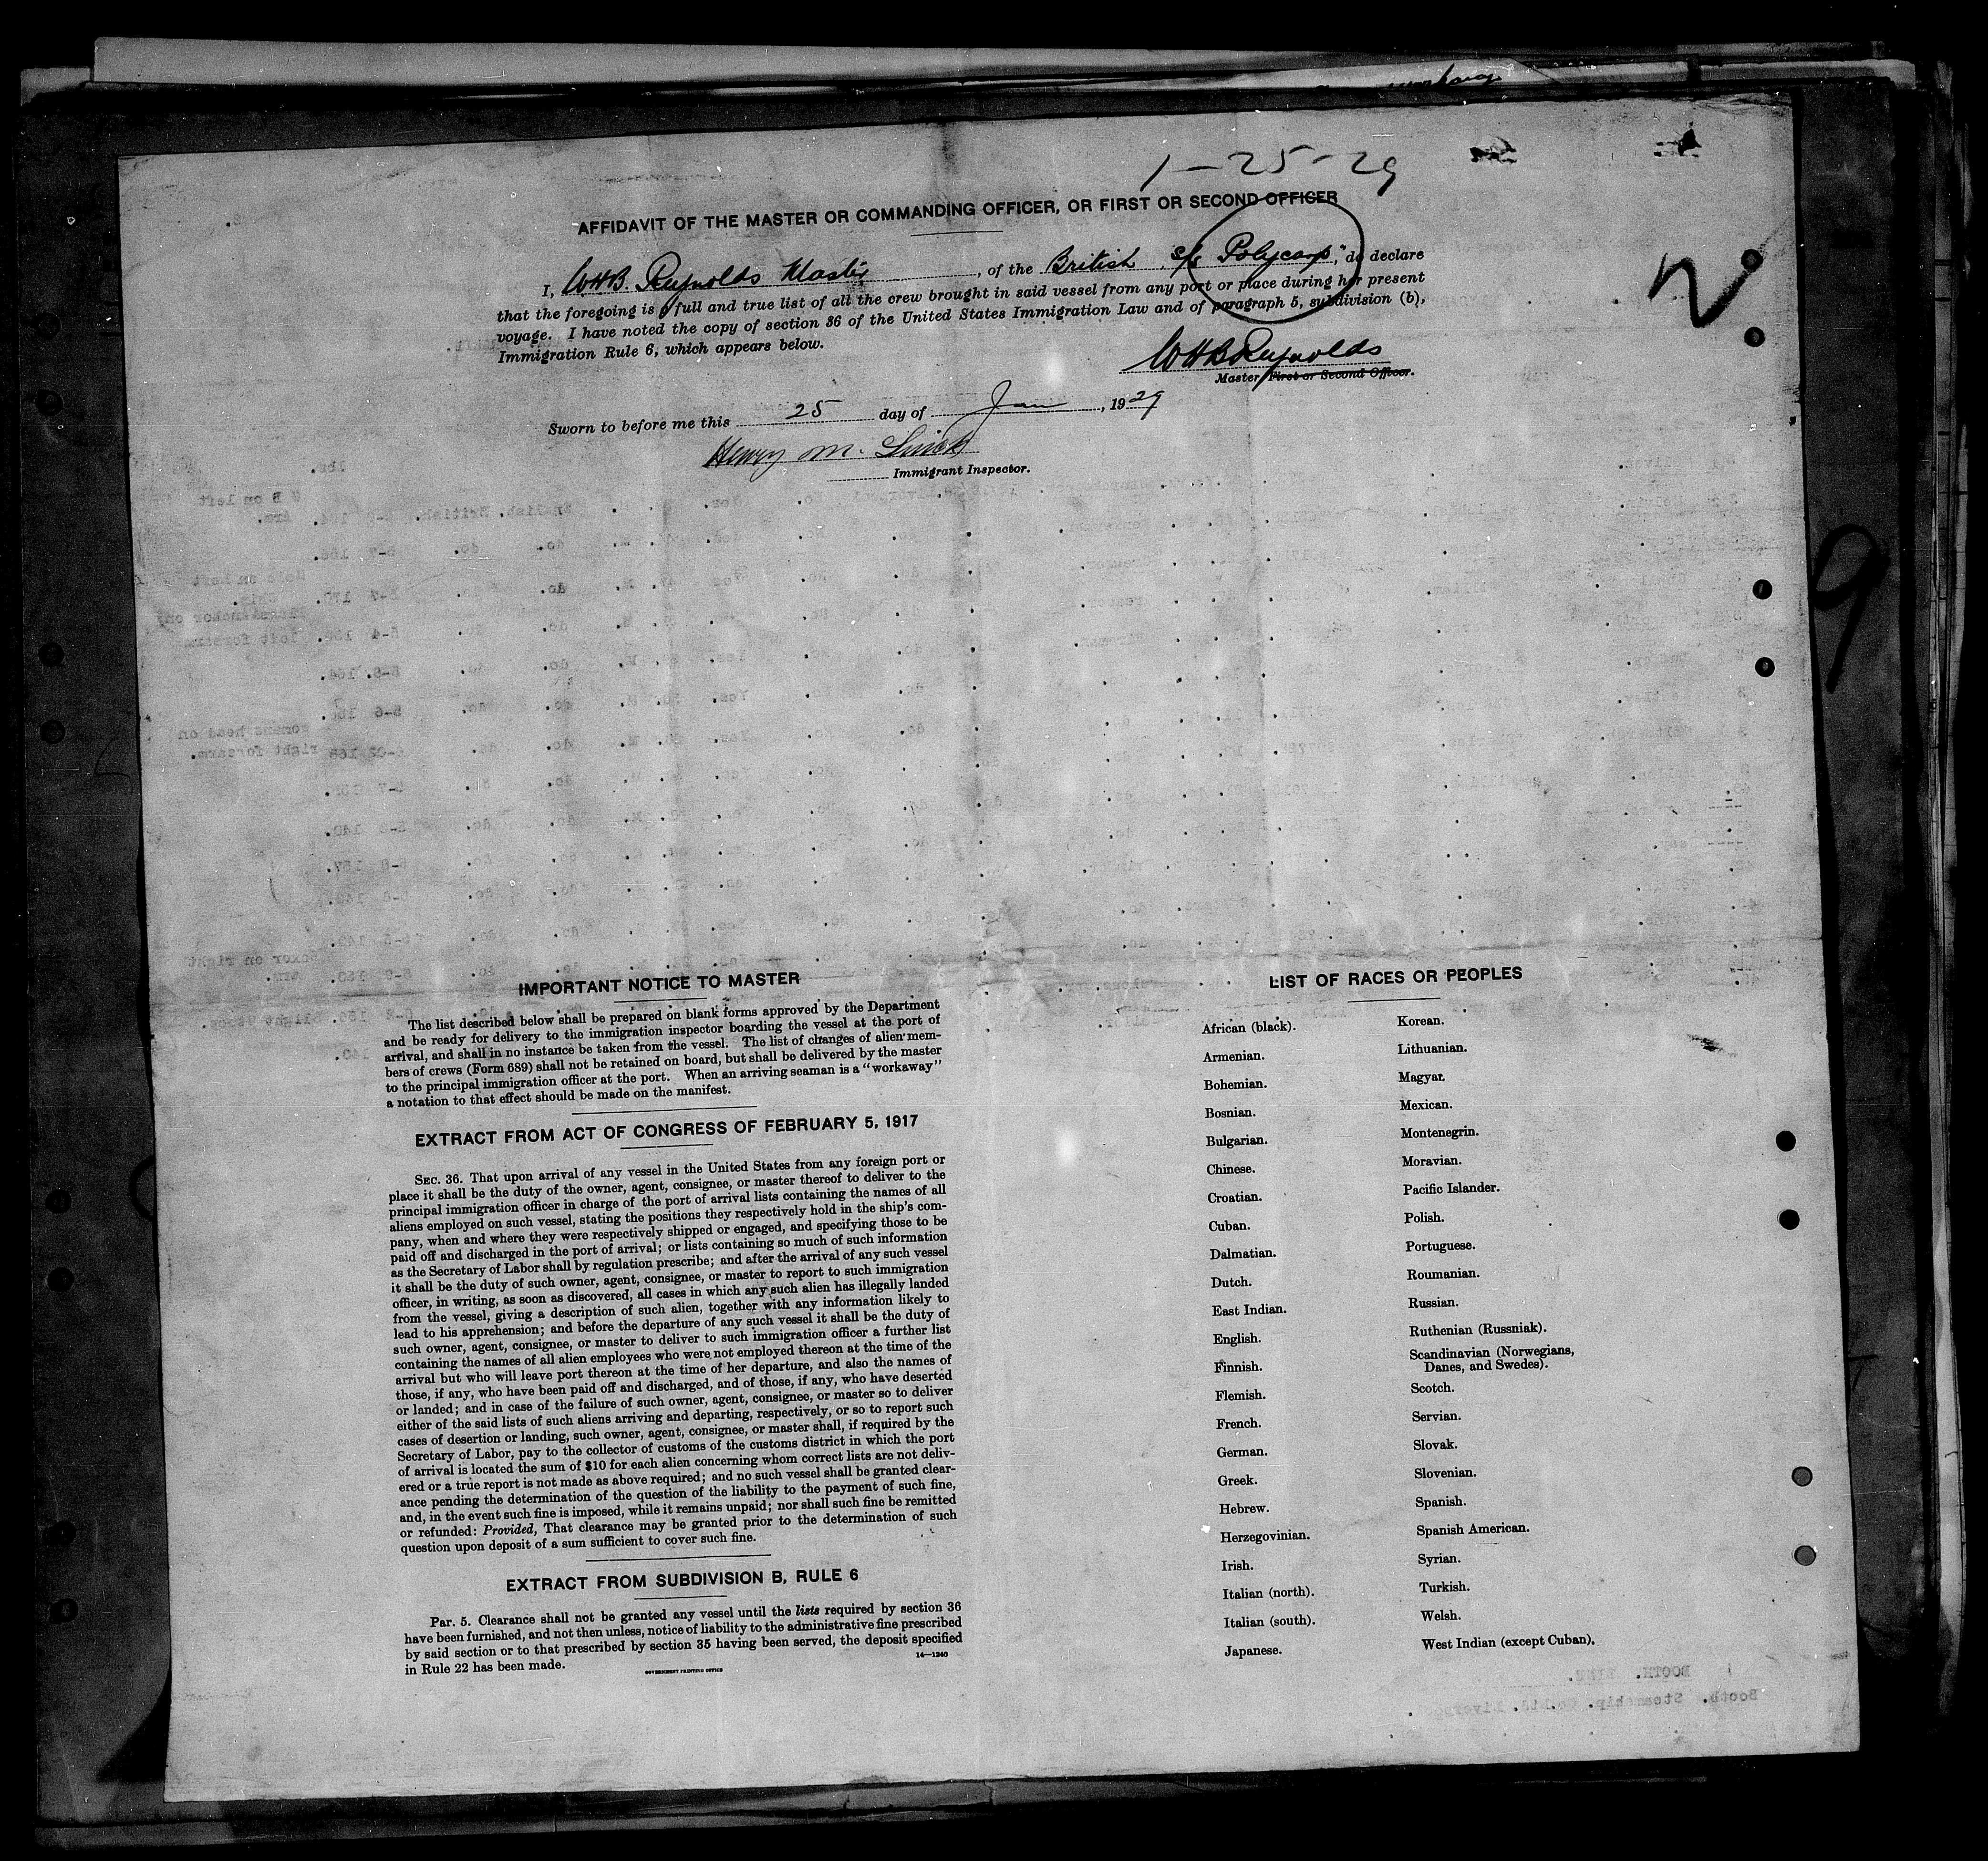 1-25-29
AFFIDAVIT OF THE MASTER OR COMMANDING OFFICER, OR FIRST OR SECOND OFFICER
I, WHB. Reynolds Master, of the British s/s Polycarp," do declare
that the foregoing is a full and true list of all the crew brought in said vessel from any port or place during her present
voyage. I have noted the copy of section 36 of the United States Immigration Law and of paragraph 5, subdivision (b),
Immigration Rule 6, which appears below.
WHB Reynolds
Master, First or Second Officer.
Sworn to before me this 25 day of Jan, 1929
Henry M.
Immigrant Inspector.
N
9
IMPORTANT NOTICE TO MASTER
The list described below shall be prepared on blank forms approved by the Department
and be ready for delivery to the immigration inspector boarding the vessel at the port of
arrival, and shall in no instance be taken from the vessel. The list of changes of alien mem-
bers of crews (Form 689) shall not be retained on board, but shall be delivered by the master
to the principal immigration officer at the port. When an arriving seaman is a "workaway"
a notation to that effect should be made on the manifest.
EXTRACT FROM ACT OF CONGRESS OF FEBRUARY 5, 1917
SEC. 36. That upon arrival of any vessel in the United States from any foreign port or
place it shall be the duty of the owner, agent, consignee, or master thereof to deliver to the
principal immigration officer in charge of the port of arrival lists containing the names of all
aliens employed on such vessel, stating the positions they respectively hold in the ship's com-
pany, when and where they were respectively shipped or engaged, and specifying those to be
paid off and discharged in the port of arrival; or lists containing so much of such information
as the Secretary of Labor shall by regulation prescribe; and after the arrival of any such vessel
it shall be the duty of such owner, agent, consignee, or master to report to such immigration
officer, in writing, as soon as discovered, all cases in which any such alien has illegally landed
from the vessel, giving a description of such alien, together with any information likely to
lead to his apprehension; and before the departure of any such vessel it shall be the duty of
such owner, agent, consignee, or master to deliver to such immigration officer a further list
containing the names of all alien employees who were not employed thereon at the time of the
arrival but who will leave port thereon at the time of her departure, and also the names of
those, if any, who have been paid off and discharged, and of those, if any, who have deserted
or landed; and in case of the failure of such owner, agent, consignee, or master so to deliver
either of the said lists of such aliens arriving and departing, respectively, or so to report such
cases of desertion or landing, such owner, agent, consignee, or master shall, if required by the
Secretary of Labor, pay to the collector of customs of the customs district in which the port
of arrival is located the sum of $10 for each alien concerning whom correct lists are not deliv-
ered or a true report is not made as above required; and no such vessel shall be granted clear-
ance pending the determination of the question of the liability to the payment of such fine,
and, in the event such fine is imposed, while it remains unpaid; nor shall such fine be remitted
or refunded: Provided, That clearance may be granted prior to the determination of such
question upon deposit of a sum sufficient to cover such fine.
EXTRACT FROM SUBDIVISION B, RULE 6
Par. 5. Clearance shall not be granted any vessel until the lists required by section 36
have been furnished, and not then unless, notice of liability to the administrative fine prescribed
by said section or to that prescribed by section 35 having been served, the deposit specified
in Rule 22 has been made.
14—1240
GOVERNMENT PRINTING OFFICE
LIST OF RACES OR PEOPLES
African (black).
Armenian.
Bohemian.
Bosnian.
Bulgarian.
Chinese.
Croatian.
Cuban.
Dalmatian.
Dutch.
East Indian.
English.
Finnish.
Flemish.
French.
German.
Greek.
Hebrew.
Herzegovinian.
Irish.
Italian (north).
Italian (south).
Japanese.
Korean.
Lithuanian.
Magyar.
Mexican.
Montenegrin.
Moravian.
Pacific Islander.
Polish.
Portuguese.
Roumanian.
Russian.
Ruthenian (Russniak).
Scandinavian (Norwegians,
Danes, and Swedes).
Scotch.
Servian.
Slovak.
Slovenian.
Spanish.
Spanish American.
Syrian.
Turkish.
Welsh.
West Indian (except Cuban).